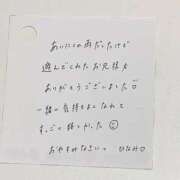 あいにくの雨だったけど
遊んでくれたお兄様♂
ありがとうございました♡
一緒に気持ちよくなれて
すっごく嬉しかった☺
おやすみなさい〜 ひなみ♡